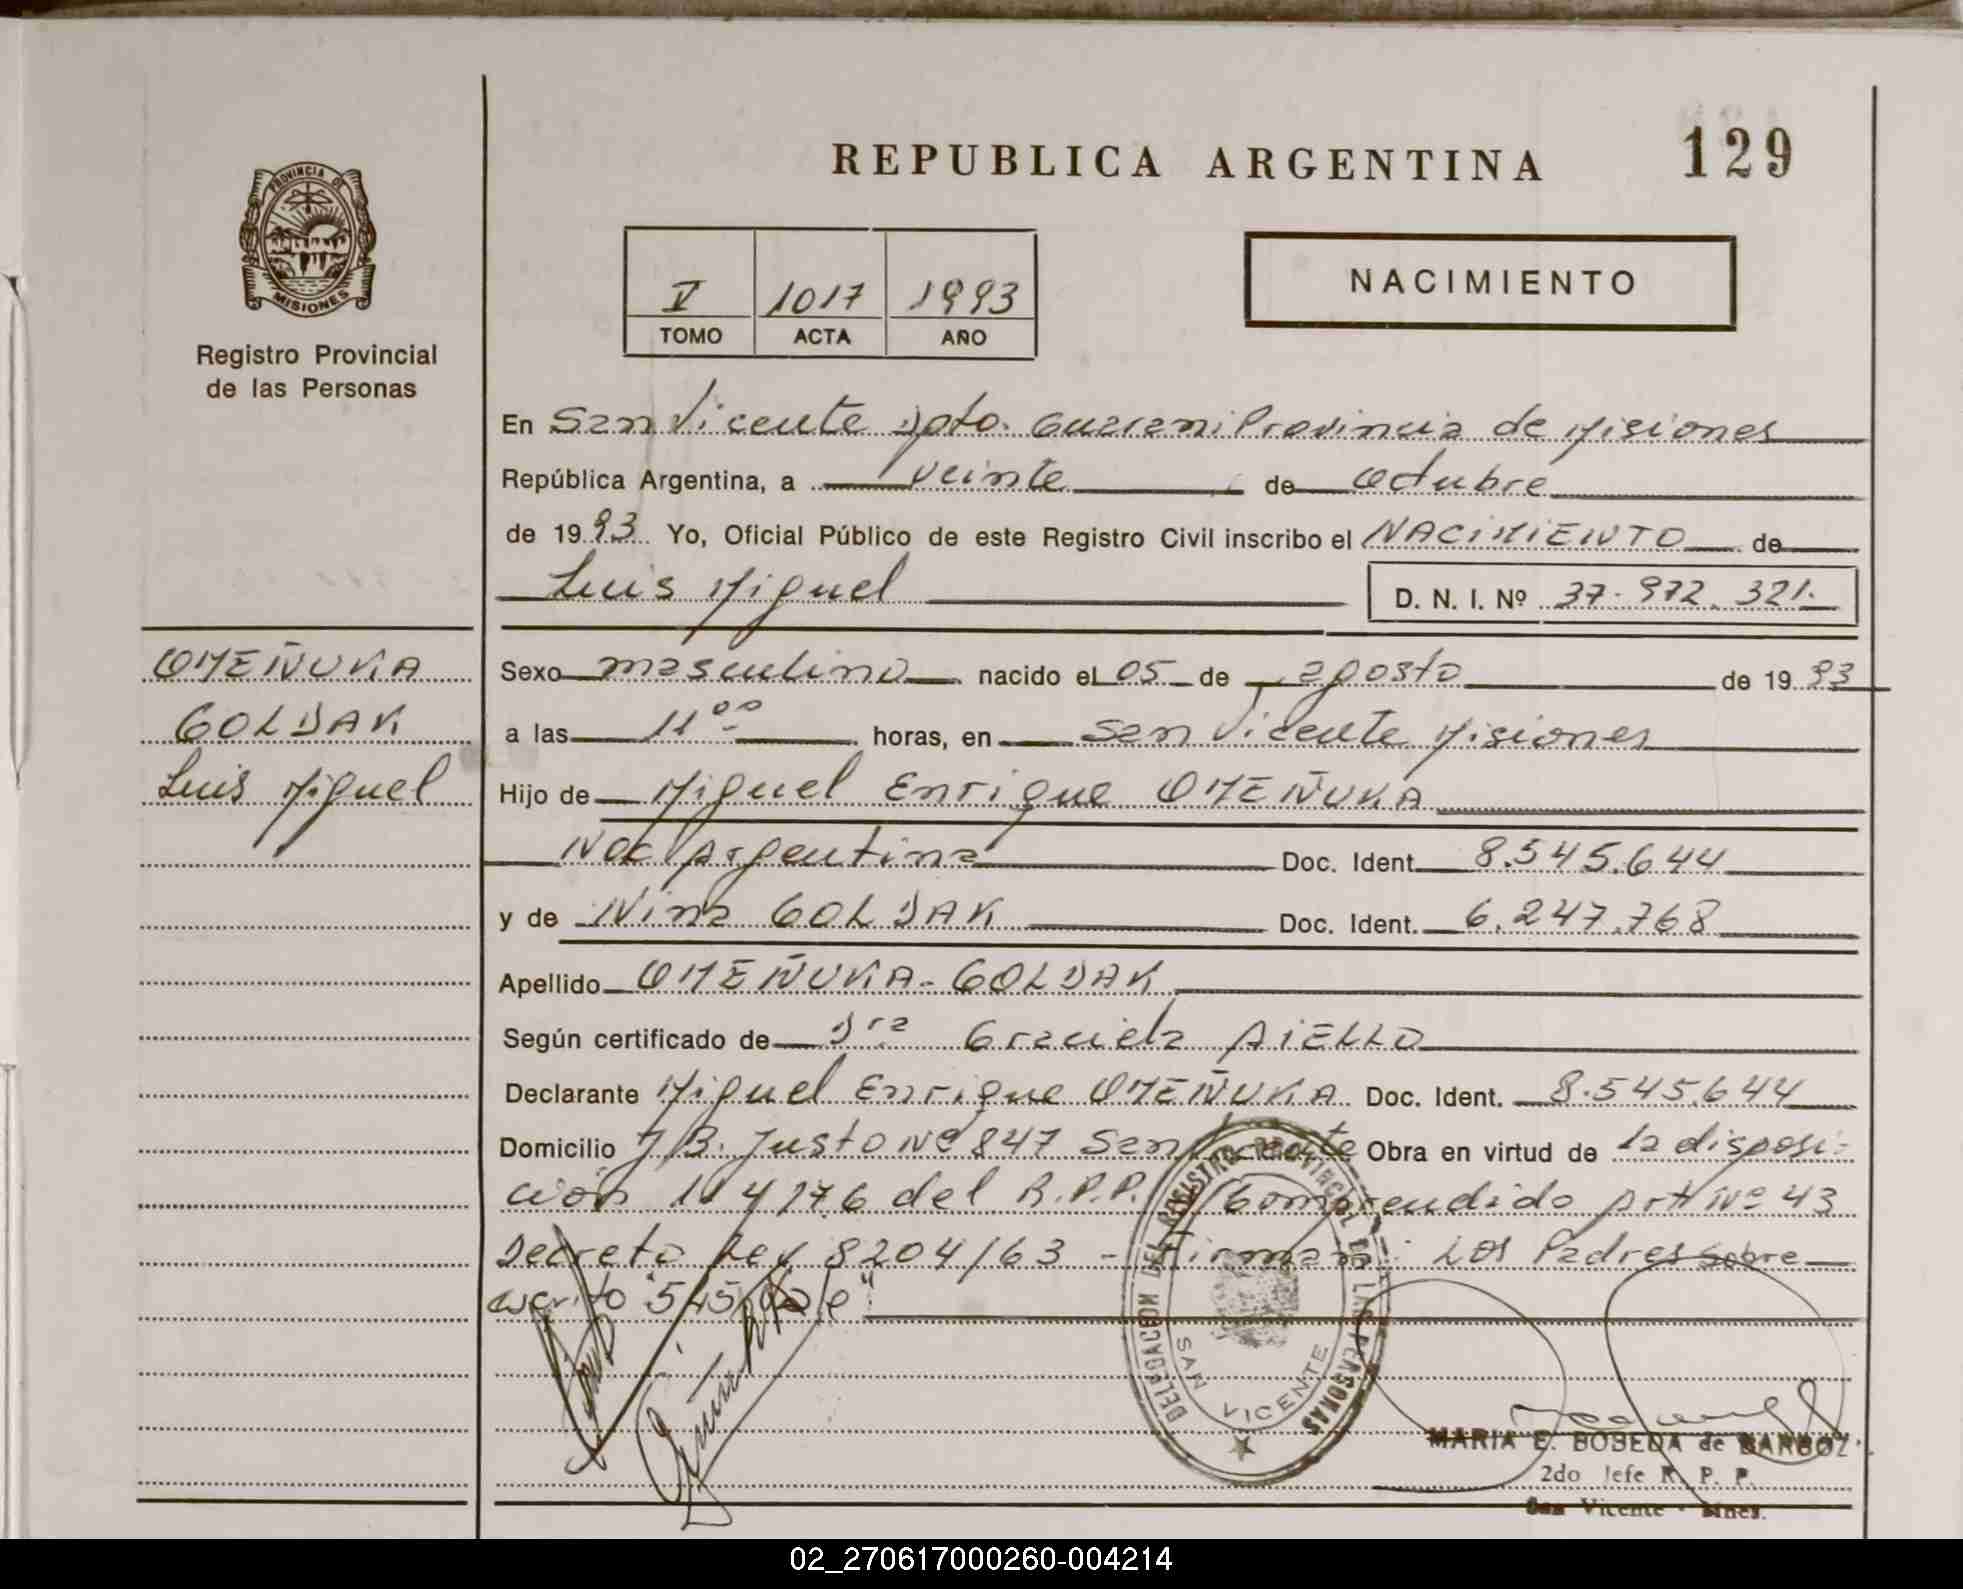 PROVINCIA DE
MISIONES
Registro Provincial
de las Personas
OMEÑUKA
GOLDAK
Luis Miguel
REPUBLICA ARGENTINA
129
V 1017 1993
TOMO ACTA AÑO
NACIMIENTO
En San Vicente Dpto. Guarani Provincia de Misiones
República Argentina, a veinte de octubre
de 1993 Yo, Oficial Público de este Registro Civil inscribo el NACIMIENTO de
Luis Miguel D. N. I. Nº 37.972.321.
Sexo masculino nacido el 05 de agosto de 1993
a las 11⁰⁰ horas, en San Vicente Misiones
Hijo de Miguel Enrique OMEÑUKA
Nac Argentina Doc. Ident. 8.545.644
y de Nina GOLDAK Doc. Ident. 6.247.768
Apellido OMEÑUKA-GOLDAK
Según certificado de Dra Graciela AIELLO
Declarante Miguel Enrique OMEÑUKA Doc. Ident. 8.545.644
Domicilio J B. Justo Nº 847 San Vicente Obra en virtud de la disposi-
ción 176 del R.P.P. Comprendido Art Nº 43
Decreto Ley 8204/63 - Firman: Los Padres sobre
escrito "545
DELEGACION DEL REGISTRO PROVINCIAL DE LAS PERSONAS
SAN VICENTE
MARIA E. BOBEDA de BARBOZ
2do Jefe R. P. P.
San Vicente - Mnes.
02_270617000260-004214